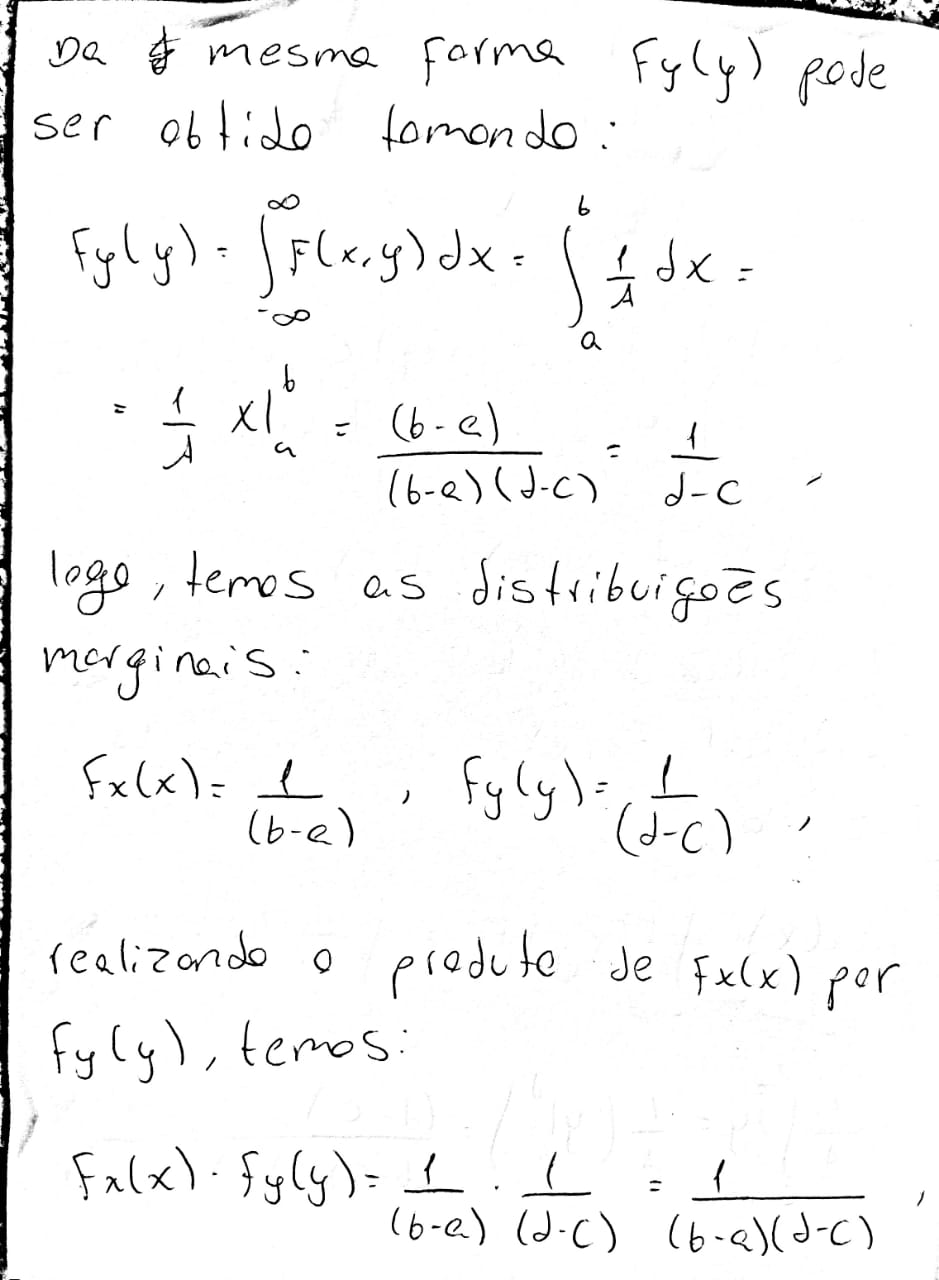 Da mesma forma Fy(y) pode
ser obtido tomando:
Fy(y) = ∫_{-∞}^{∞} F(x,y) dx = ∫_a^b 1/A dx =
= 1/A x|_a^b = (b-a)/((b-a)(d-c)) = 1/(d-c) ,
logo, temos as distribuições
marginais:
Fx(x) = 1/(b-a) , Fy(y) = 1/(d-c) ,
realizando o produto de Fx(x) por
Fy(y), temos:
Fx(x) · Fy(y) = 1/(b-a) · 1/(d-c) = 1/((b-a)(d-c)) ,